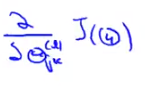 ∂/∂Θ_{jk}^{(l)} J(Θ)